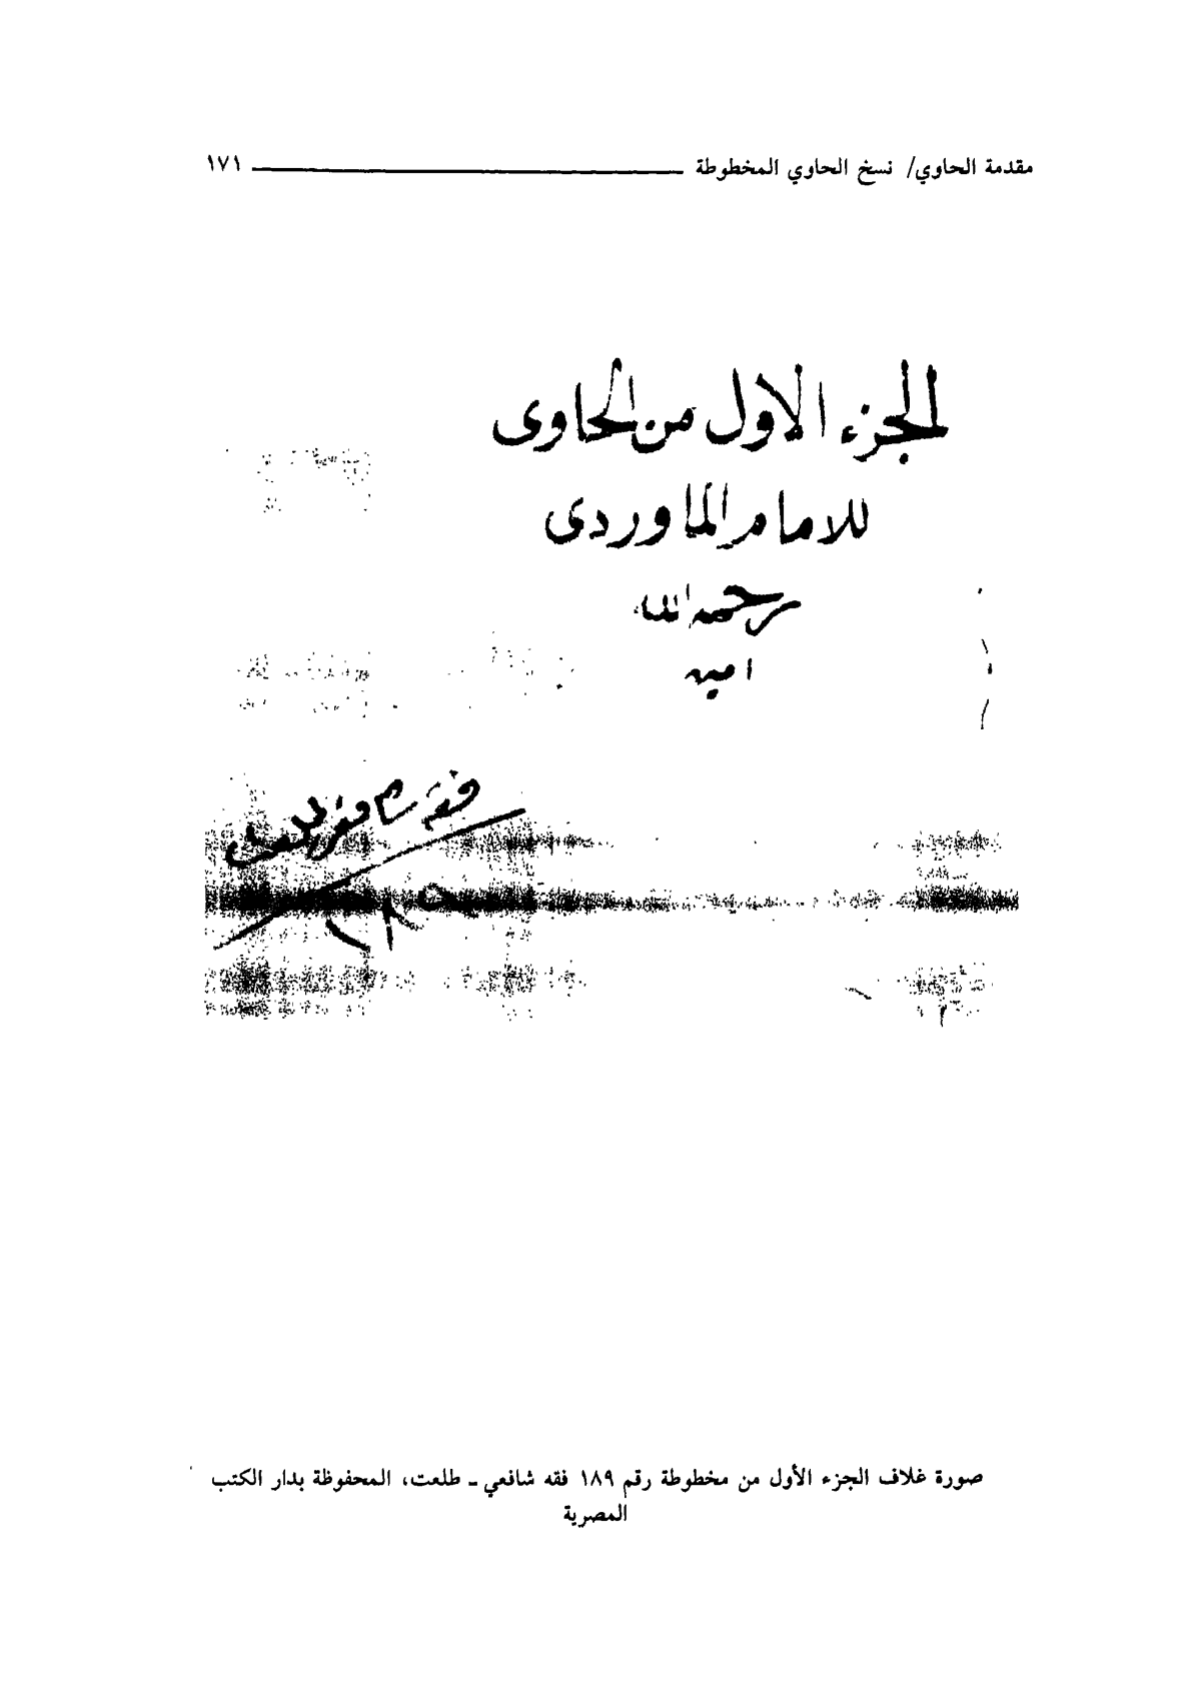 مقدمة الحاوي/ نسخ الحاوي المخطوطة ١٧١
الجزء الاول من الحاوى
للامام الماوردى
رحمه الله
امين
فقه شافعى طلعت
صورة غلاف الجزء الأول من مخطوطة رقم ١٨٩ فقه شافعي ـ طلعت، المحفوظة بدار الكتب
المصرية